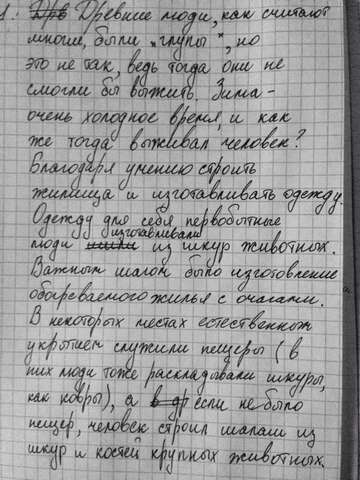 1. Дрв Древние люди, как считают
многие, были "глупы", но
это не так, ведь тогда они не
смогли бы выжить. Зима -
очень холодное время, и как
же тогда выживал человек?
Благодаря умению строить
жилища и изготавливать одежду.
Одежду для себя первобытные
люди изготавливали из шкур животных.
Важным шагом было изготовление
обогреваемого жилья с очагами.
В некоторых местах естественным
укрытием служили пещеры (в
них люди тоже раскладывали шкуры,
как ковры), а в др если не было
пещер, человек строил шалаш из
шкур и костей крупных животных.